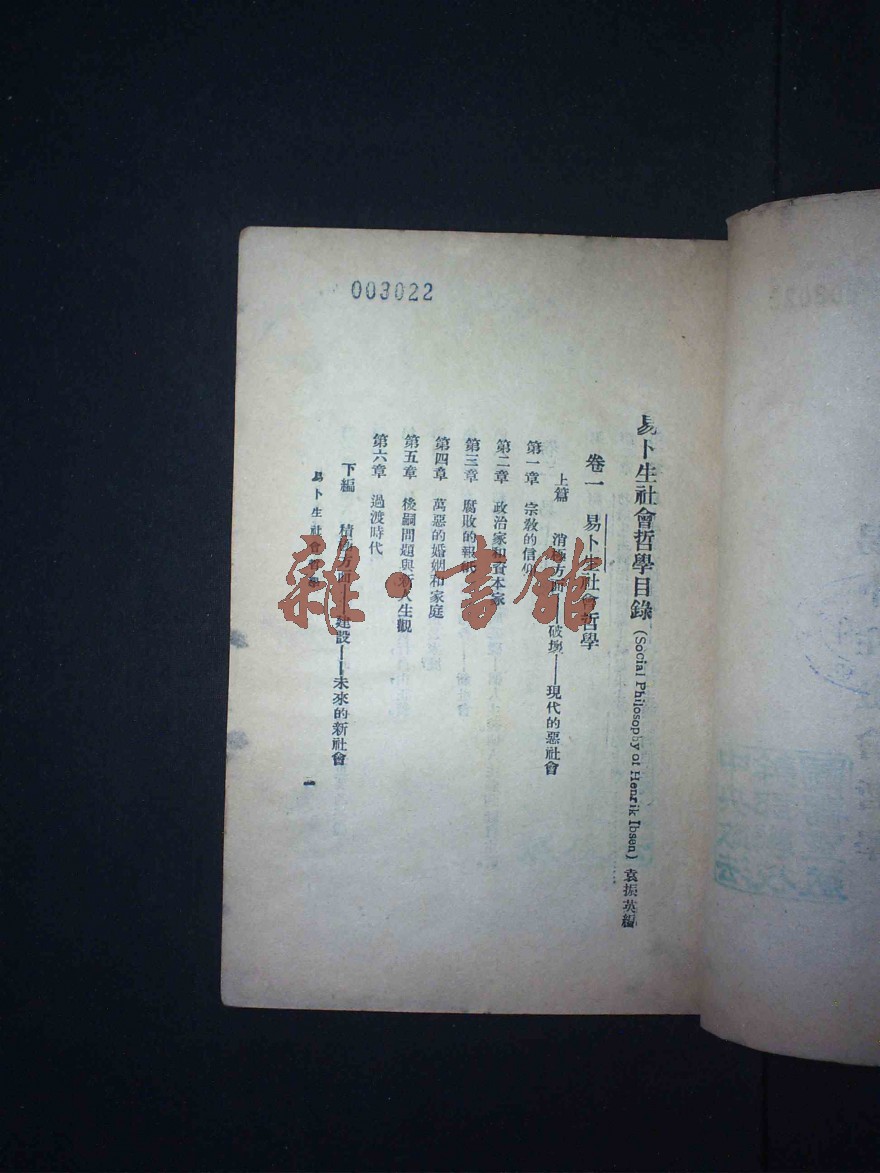 003022
易卜生社會哲學目錄 (Social Philosophy of Henrik Ibsen) 袁振英編
卷一 易卜生社會哲學
上篇 消極方面——破壞——現代的惡社會
第一章 宗教的信仰
第二章 政治家和資本家
第三章 腐敗的報紙
第四章 萬惡的婚姻和家庭
第五章 後嗣問題與新人生觀
第六章 過渡時代
下編 積極方面——建設——未來的新社會
易卜生社會哲學
一
雜·書館